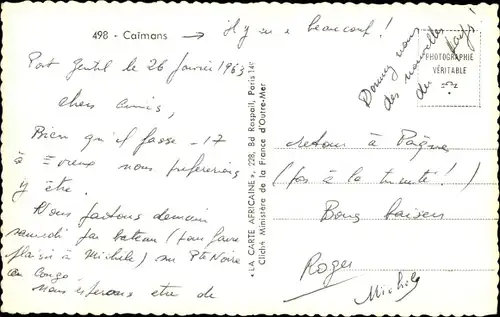 498 - Caïmans → il y en a beaucoup !
Port Gentil le 26 Janvier 1963
chers amis,
Bien qu'il fasse -17
à Evreux nous préférerions
y être.
Nous partons demain
samedi par bateau (pour faire
plaisir à Michèle) sur Pte Noire
au Congo
nous espérons etre de
« LA CARTE AFRICAINE », 228, Bd Raspail, Paris 14e
Cliché Ministère de la France d'Outre-Mer
Donnez nous
des nouvelles
du pays !
PHOTOGRAPHIE
VÉRITABLE
retour à Pâques
(pas à la !)
Bons baisers
Roger
Michèle